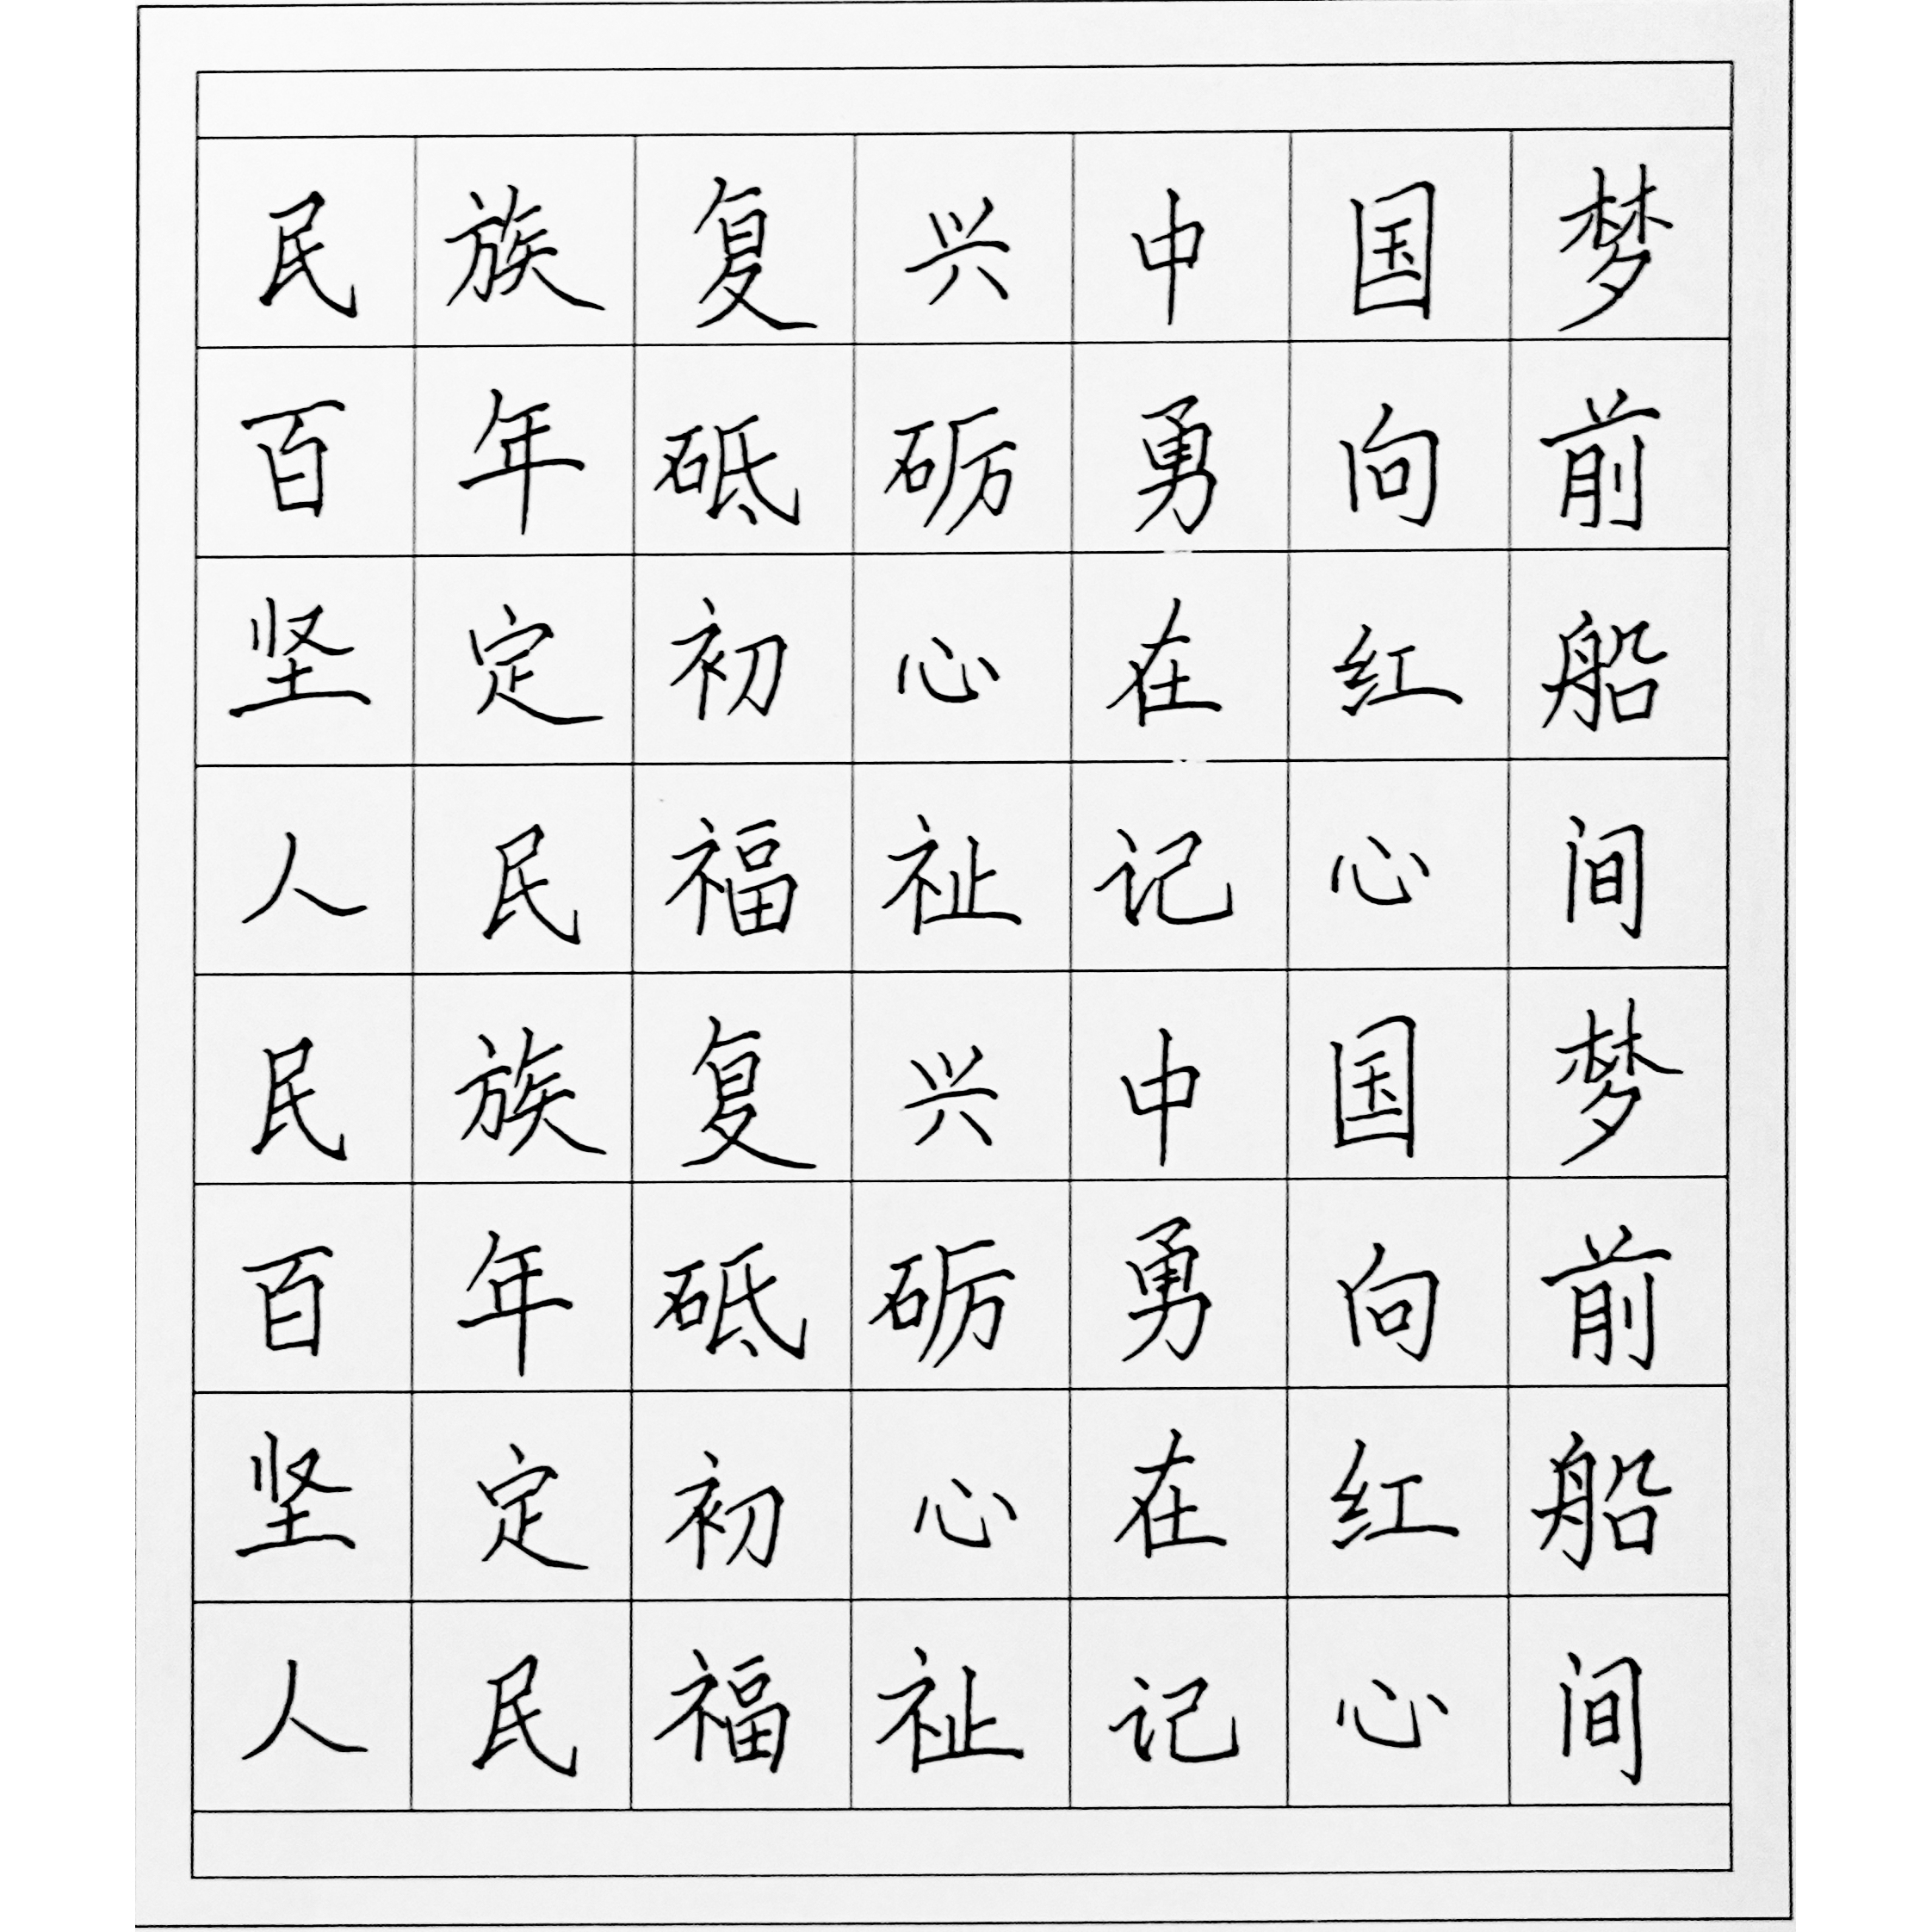 民族复兴中国梦
百年砥砺勇向前
坚定初心在红船
人民福祉记心间
民族复兴中国梦
百年砥砺勇向前
坚定初心在红船
人民福祉记心间